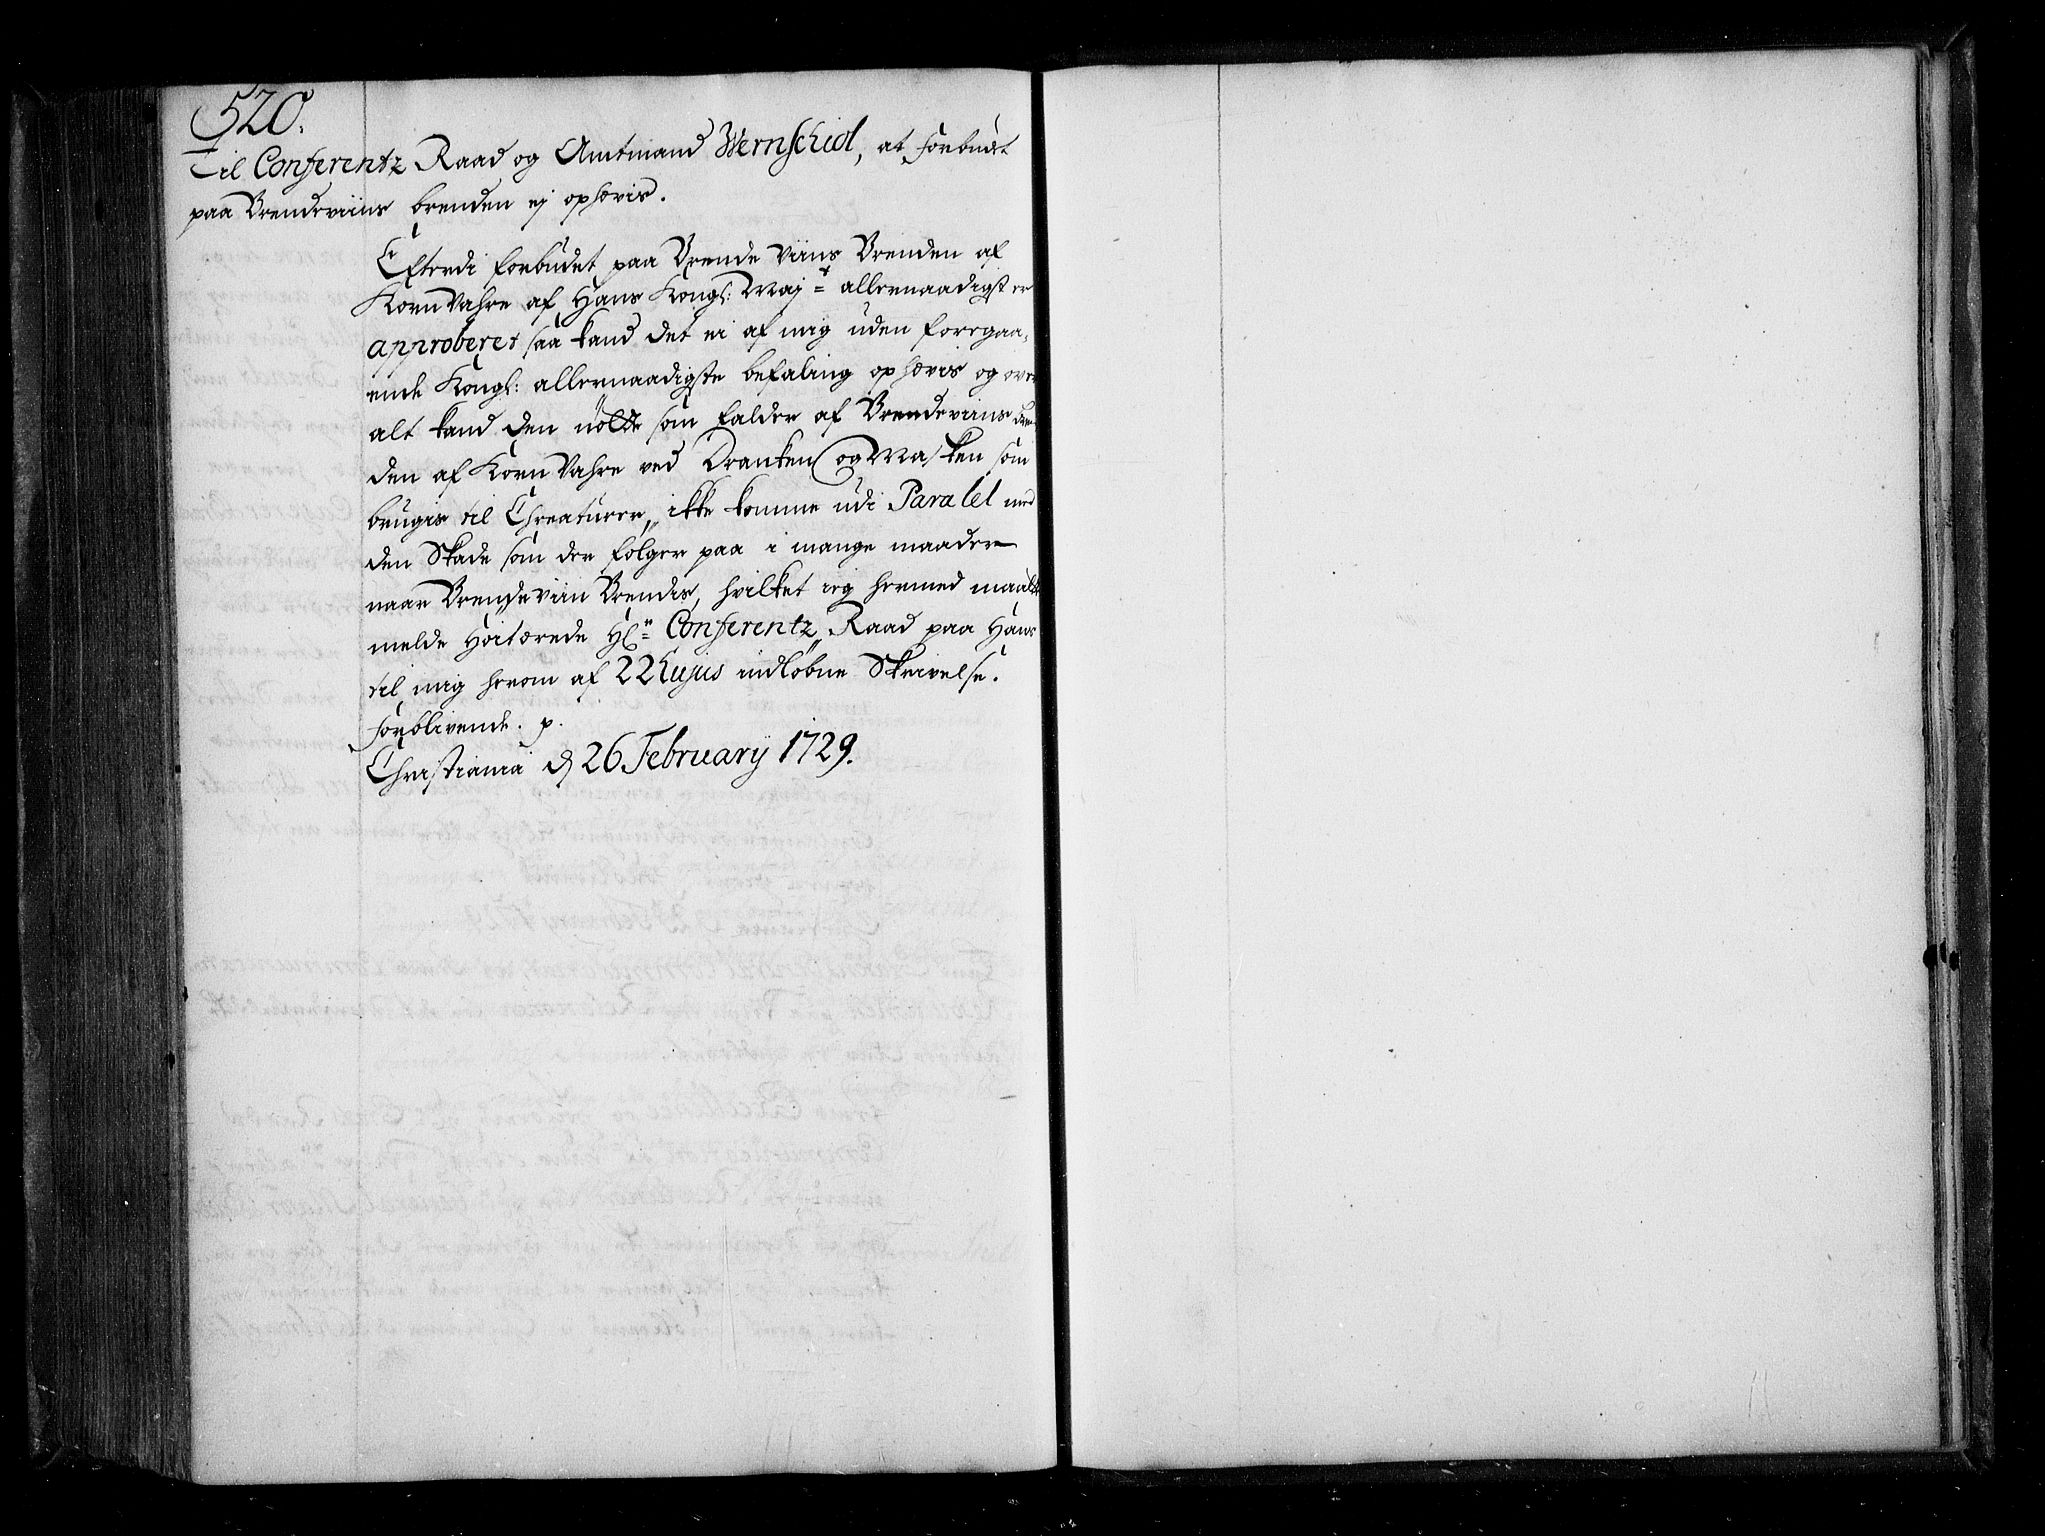 520.
Til Conferentz Raad og Amtmand Wernschiol, at forbudet
paa Brendeviins brenden ej ophæves.
Efterdi forbudet paa Brende Viins Brenden af
Korn Vahre af Hans Kongl: May:t allernaadigst er
approberet saa kand det ei af mig uden foregaa-
ende Kongl: allernaadigste befaling ophæves og over
alt kand den nøtte som falder af Brendeviins Bren-
den af Korn Vahre ved Dranken og Masken som
brugis til Chreaturer, ikke komme udi Paralel med
den Skade som der følger paa i mange maader
naar Brendeviin Brendis, hvilket ieg hermed
melde Høitærede Hr: Conferentz Raad paa Hans
til mig herom af 22 hujus indløbne Skrivelse.
forblivende. p.
Christiania d 26 February 1729.